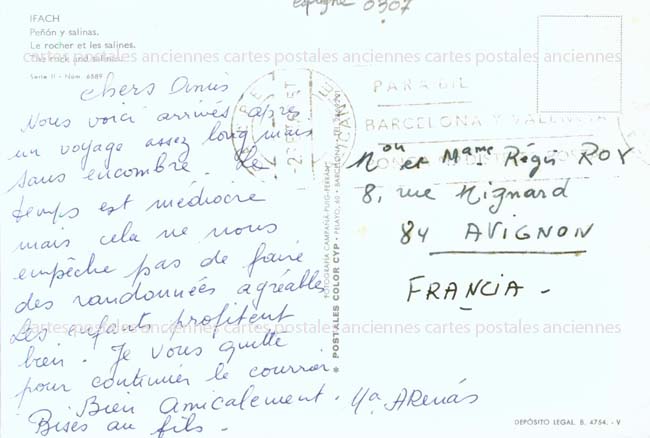 espagne 0307
IFACH
Peñón y salinas.
Le rocher et les salines.
The rock and salines.
Serie II - Núm. 6589
cartes postales anciennes cartes postales anciennes cartes postales anciennes
Chers Amis
Nous voici arrivés après
un voyage assez long mais
sans encombre. Le
temps est médiocre
mais cela ne nous
empêche pas de faire
des randonnées agréables
Les enfants profitent
bien. Je vous quitte
pour continuer le courrier.
Bien amicalement.
Bises au fils.
FOTOGRAFIA CAMPAÑA PUIG-FERRAN
* POSTALES COLOR CYP - PELAYO, 60 - BARCELONA
PARA GIL
BARCELONA Y VALENCIA
Mon et Mame Régis ROY
8, rue Mignard
84 AVIGNON
FRANCIA -
cartes postales anciennes cartes postales anciennes cartes postales anciennes
DEPÓSITO LEGAL B. 4754. - V